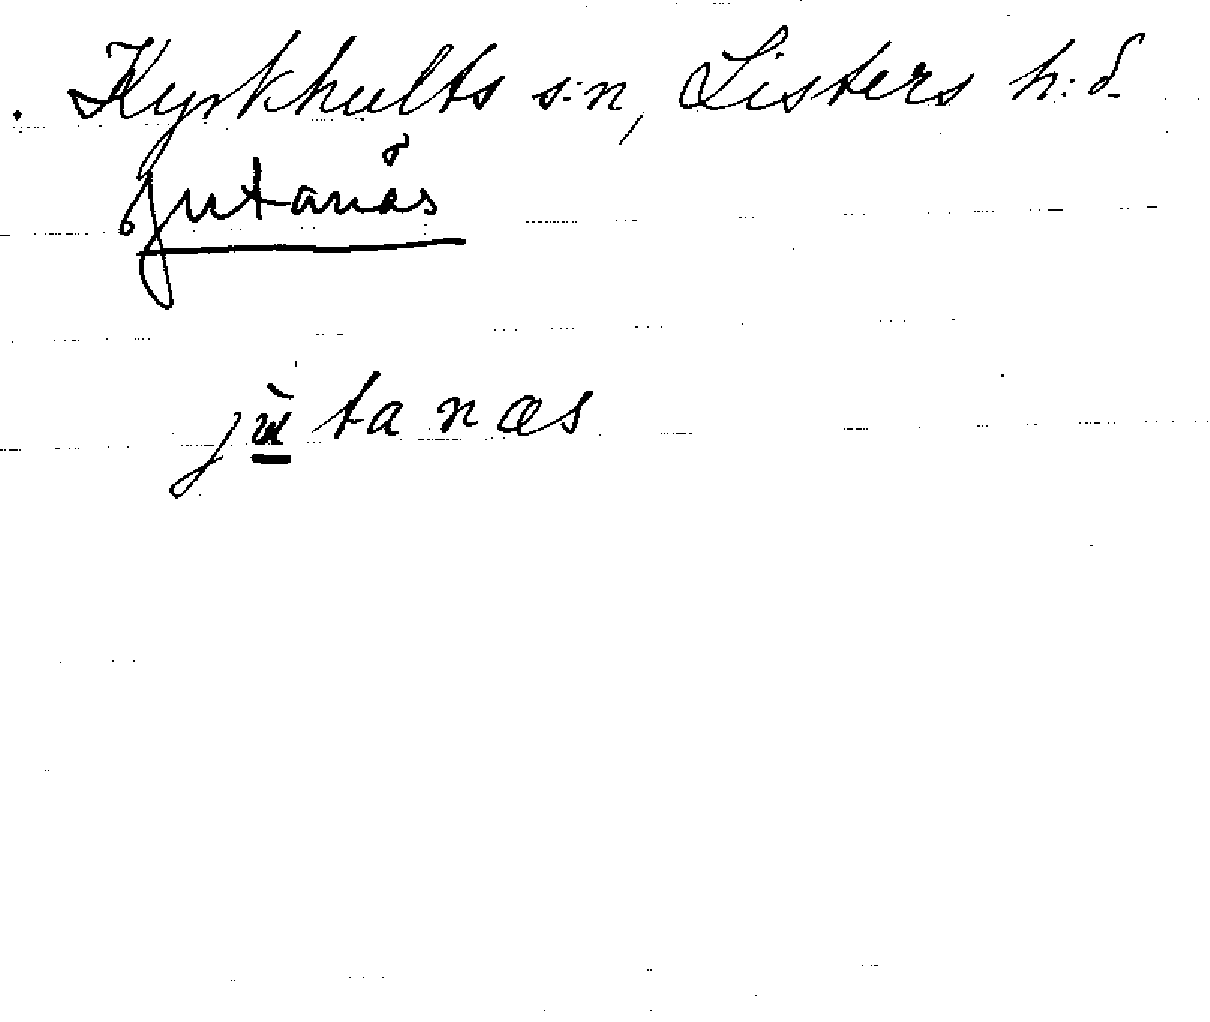 Kyrkhults s:n, Listers h:d.
Jutanäs
jùtanæs